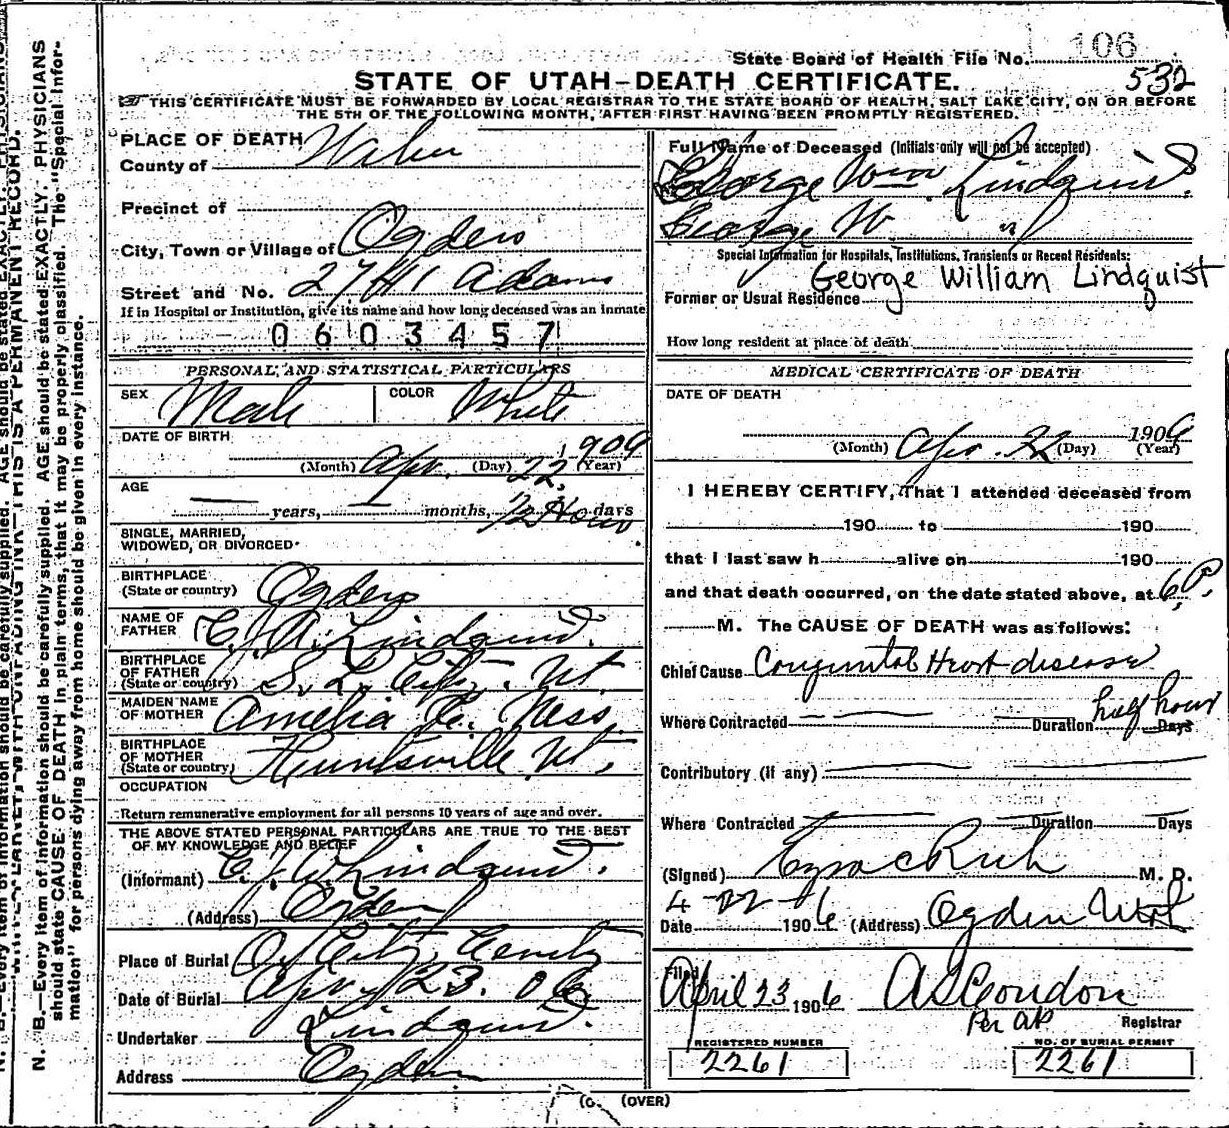 State Board of Health File No. 106
532
STATE OF UTAH–DEATH CERTIFICATE.
THIS CERTIFICATE MUST BE FORWARDED BY LOCAL REGISTRAR TO THE STATE BOARD OF HEALTH, SALT LAKE CITY, ON OR BEFORE
THE 5TH OF THE FOLLOWING MONTH, AFTER FIRST HAVING BEEN PROMPTLY REGISTERED.
PLACE OF DEATH
County of Weber
Precinct of
City, Town or Village of Ogden
Street and No. 2741 Adams
If in Hospital or Institution, give its name and how long deceased was an Inmate
0603457
PERSONAL, AND STATISTICAL PARTICULARS
SEX Male COLOR White
DATE OF BIRTH
(Month) Apr. (Day) 22, 1906 (Year)
AGE
years, months, 1/2 Hour days
SINGLE, MARRIED,
WIDOWED, OR DIVORCED.
BIRTHPLACE
(State or country) Ogden
NAME OF
FATHER C. J. A. Lindquist.
BIRTHPLACE
OF FATHER
(State or country) S. L. City. Ut.
MAIDEN NAME
OF MOTHER Amelia C. Ness
BIRTHPLACE
OF MOTHER
(State or country) Huntsville Ut,
OCCUPATION
Return remunerative employment for all persons 10 years of age and over.
THE ABOVE STATED PERSONAL PARTICULARS ARE TRUE TO THE BEST
OF MY KNOWLEDGE AND BELIEF
(Informant) C. J. A. Lindquist.
(Address) Ogden
Place of Burial O. City Cemty
Date of Burial Apr. 23. 06
Undertaker Lindquist.
Address Ogden
Full Name of Deceased (Initials only will not be accepted)
George Wm Lindquist.
George W "
Special Information for Hospitals, Institutions, Transients or Recent Residents:
George William Lindquist
Former or Usual Residence
How long resident at place of death
MEDICAL CERTIFICATE OF DEATH
DATE OF DEATH
(Month) Apr. 22 (Day) 1906 (Year)
I HEREBY CERTIFY, That I attended deceased from
190 to 190
that I last saw h alive on 190
and that death occurred, on the date stated above, at 6 P.
M. The CAUSE OF DEATH was as follows:
Chief Cause Congenital Heart disease
Where Contracted Duration half hour Days
Contributory (if any)
Where Contracted Duration Days
(Signed) Ezra C Rich M. D.
4-22-
Date 1906 (Address) Ogden Utah
Filed April 23 1906 A S Condon
Per AP Registrar
REGISTERED NUMBER
2261
NO. OF BURIAL PERMIT
2261
(OVER)
N. B.—Every item of information should be carefully supplied. AGE should be stated EXACTLY. PHYSICIANS
should state CAUSE OF DEATH in plain terms, that it may be properly classified. The "Special Infor-
mation" for persons dying away from home should be given in every instance.